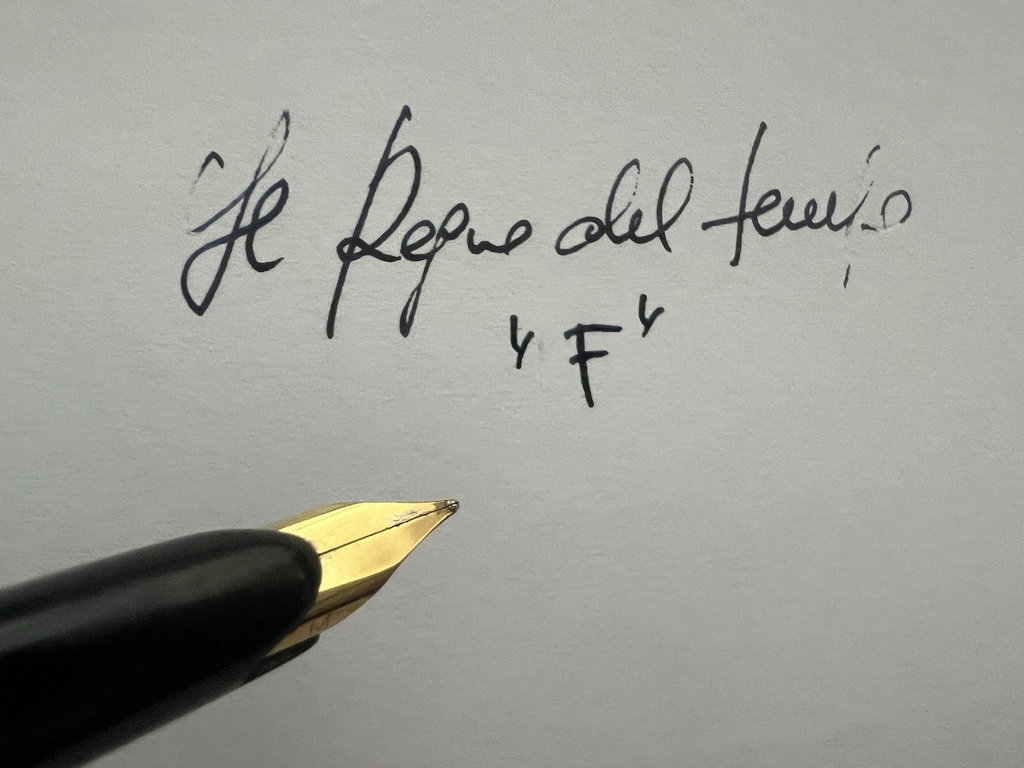 Il Regno del tempo
"F"
M